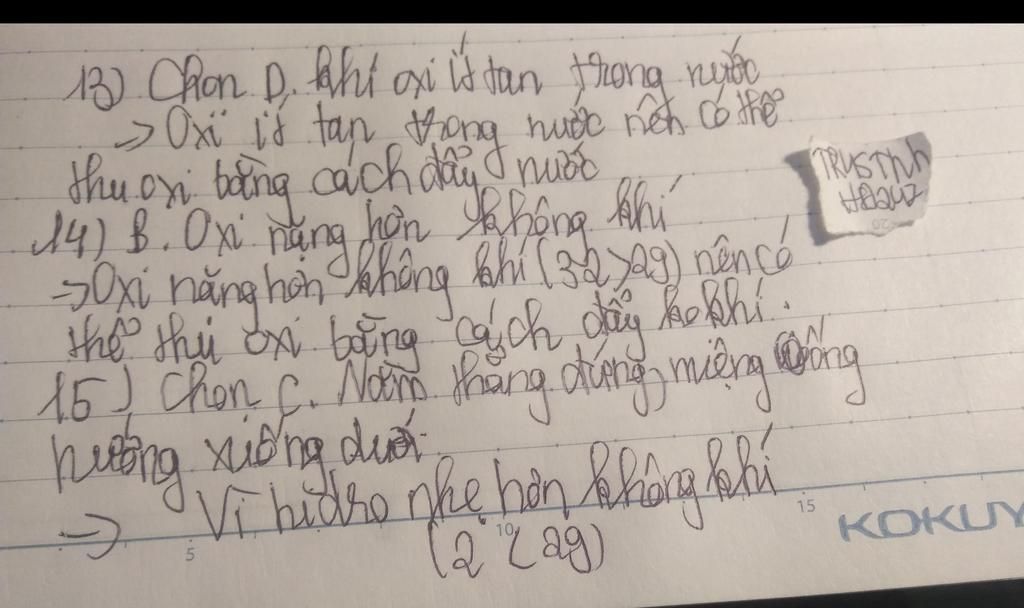 13) Chọn D. khí oxi ít tan trong nước
=> Oxi ít tan trong nước nên có thể
thu oxi bằng cách đẩy nước
14) B. Oxi nặng hơn không khí
=> Oxi nặng hơn không khí (32>29) nên có
thể thu oxi bằng cách đẩy ko khí.
15) Chọn C. Nằm thẳng đứng, miệng ống
hướng xuống dưới.
=> Vì hidro nhẹ hơn không khí
(2 < 29)
5 10 15
KOKUY